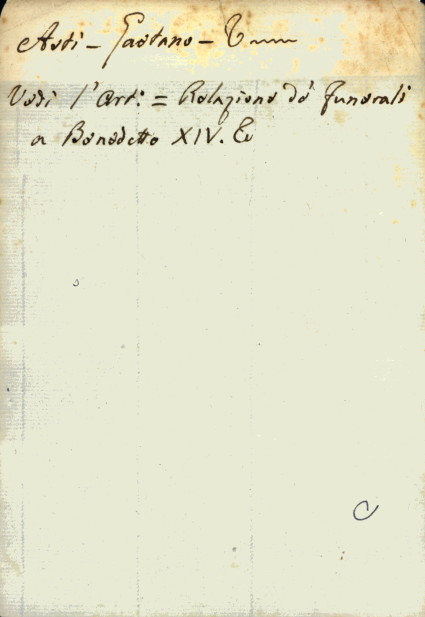 Asti - Gaetano - T
Vedi l'Art.: = Relazione de' Funerali
a Benedetto XIV. Ec
C